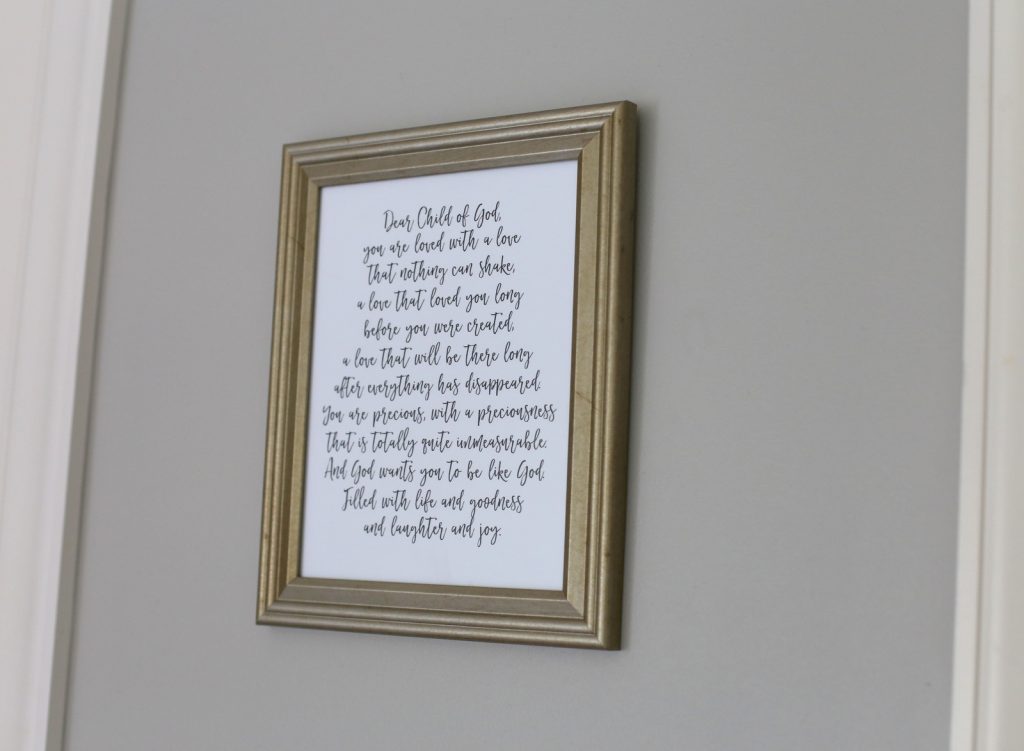 Dear Child of God,
you are loved with a love
that nothing can shake,
a love that loved you long
before you were created,
a love that will be there long
after everything has disappeared.
You are precious, with a preciousness
that is totally quite unmeasurable.
And God wants you to be like God.
Filled with life and goodness
and laughter and joy.